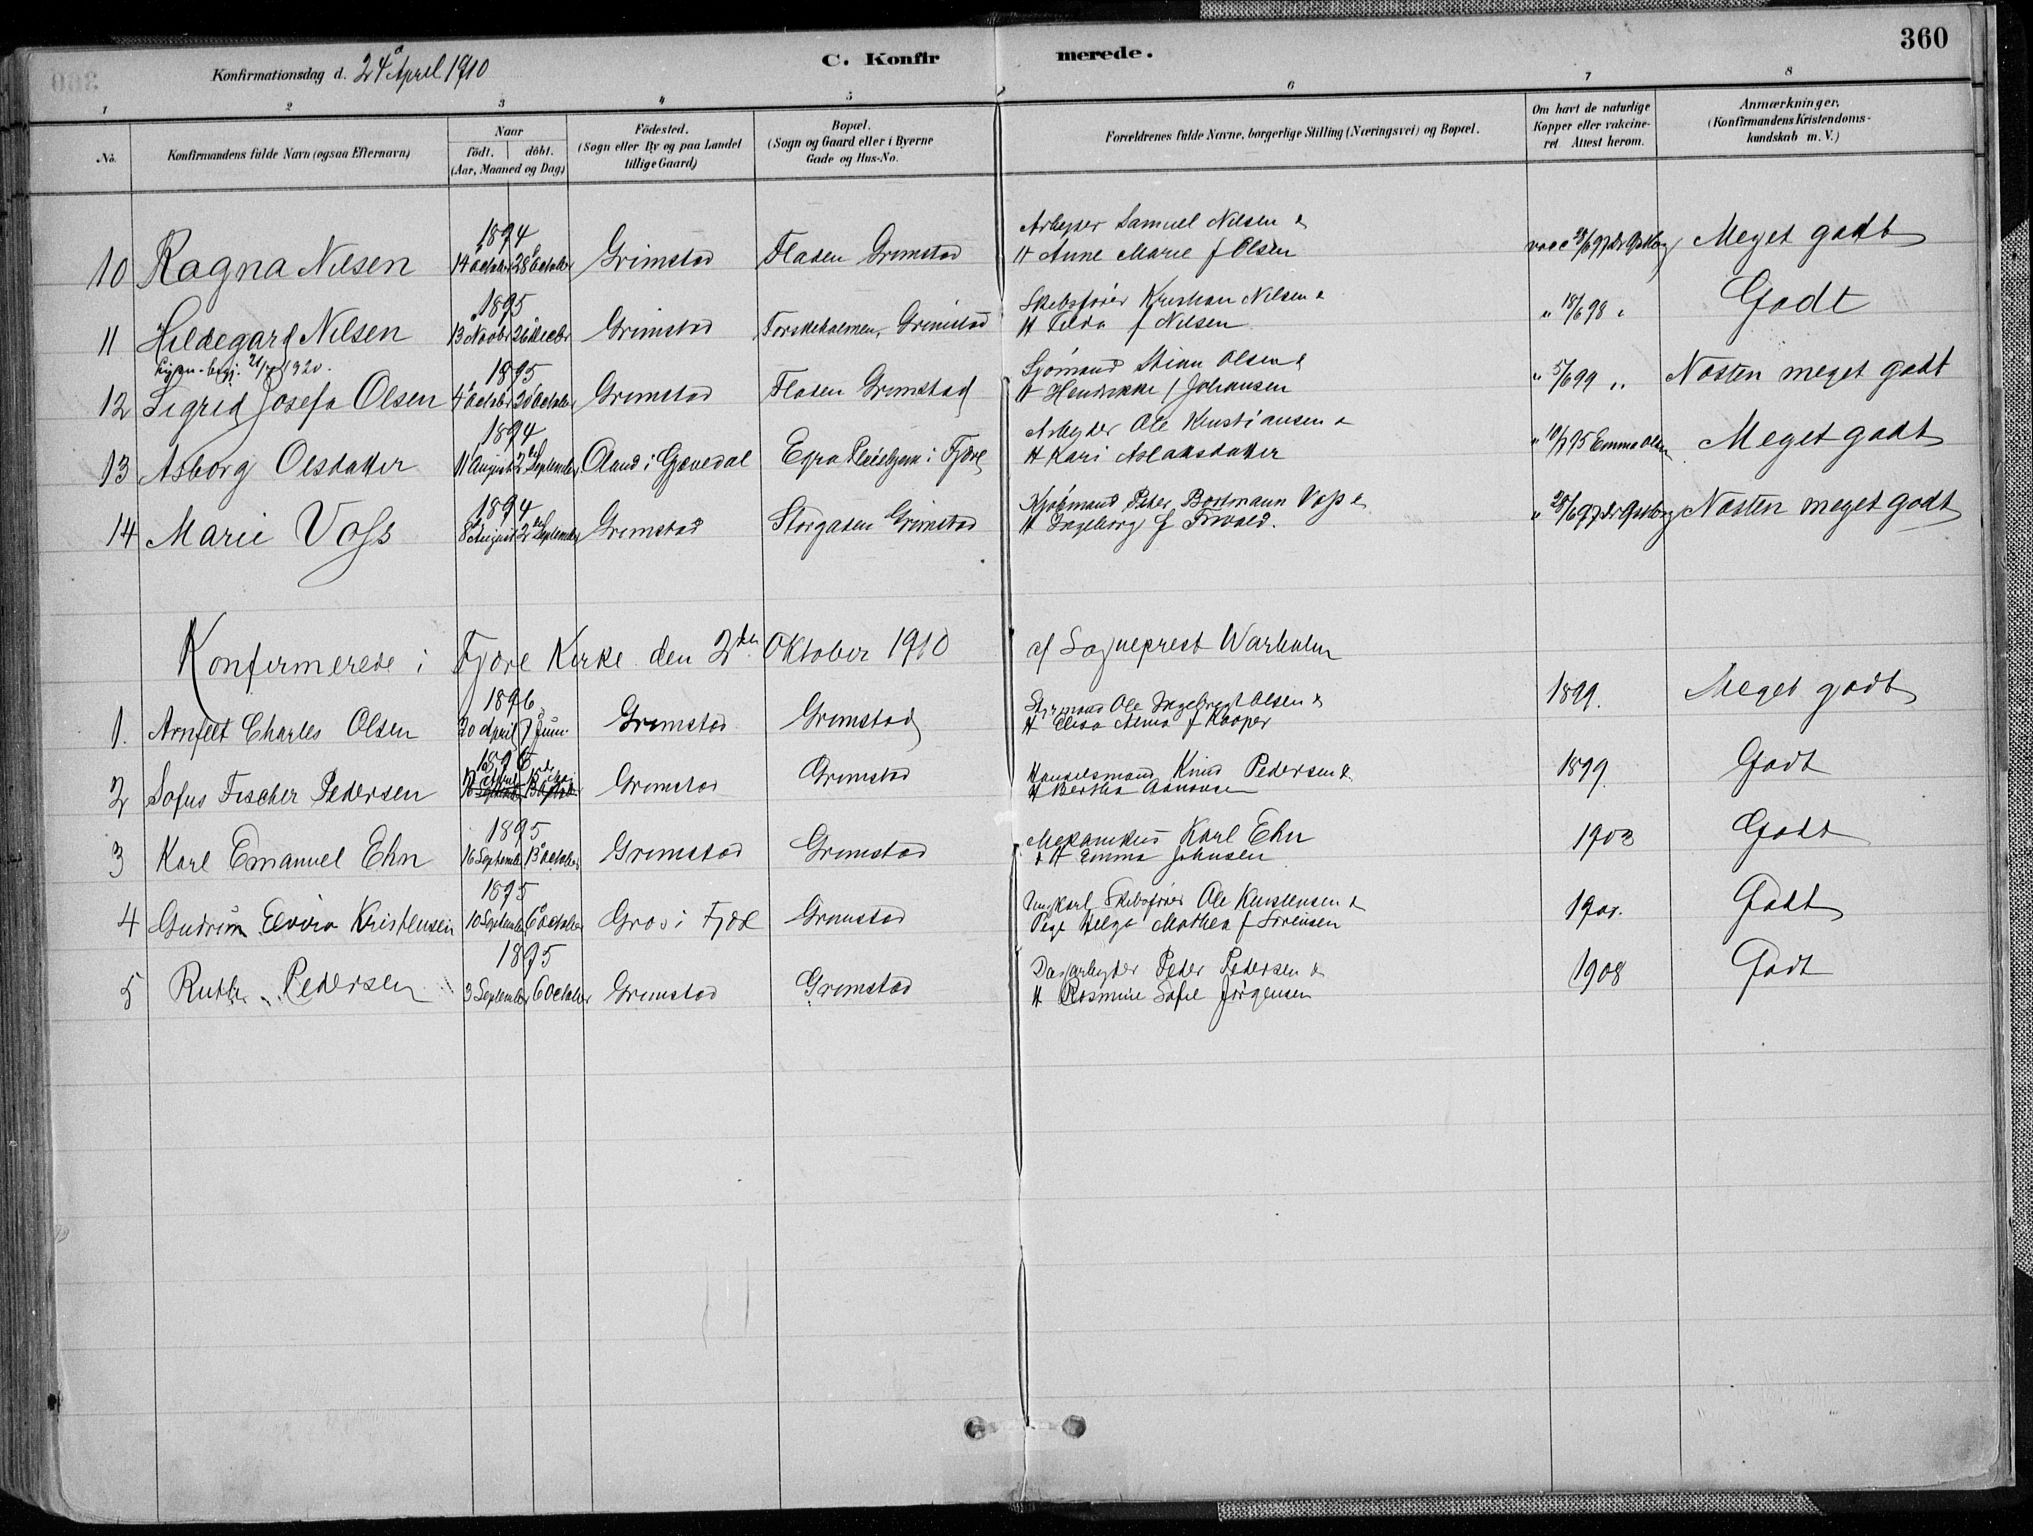 360
Konfirmationsdag d. 24 April 1910
C. Konfirmerede.
1 2 3 4 5 6 7 8
No.
Konfirmandens fulde Navn (ogsaa Efternavn)
Naar
födt. döbt.
(Aar, Maaned og Dag)
Födested.
(Sogn eller By og paa Landet
tillige Gaard)
Bopæl.
(Sogn og Gaard eller i Byerne
Gade og Hus-No.
Forældrenes fulde Navne, borgerlige Stilling (Næringsvei) og Bopæl.
Om havt de naturlige
Kopper eller vakcine-
ret Attest herom.
Anmærkninger,
(Konfirmandens Kristendoms-
kundskab m. V.)
1894
10 Ragna Nilsen 14 October 28 October Grimstad Fladen Grimstad Arbeyder Samuel Nilsen &
H Anne Marie f Olsen vacc 28/6 97 Meget godt
1895
11 Hildegard Nilsen 13 Novbr 26 Decbr Grimstad Torskeholmen, Grimstad Skibsfører Kristian Nilsen &
H Tilda f Nilsen " 18/6 98 " Godt
1920.
1895
12 Sigrid Josefa Olsen 4 Octobr 20 October Grimstad Fladen Grimstad Sjömand Stian Olsen &
H Hendrikke f Johansen " 5/6 99 " Næsten meget godt
1894
13 Asborg Olsdatter 11 August 2 September Oland i Gjævedal i Fjære Arbeyder Ole Kristiansen &
H Kari Aslaksdatter 95 Emma Olsen Meget godt
1894
14 Marie Voss 8 August 2 September Grimstad Storgaden Grimstad Kjøbmand Peter Bortmann Voss &
H Ingeborg f " 28/6 97 Næsten meget godt
Konfirmerede i Fjære Kirke den 2den Oktober 1910 af Sogneprest Warholm
1896
1. Arnfelt Charles Olsen 20 April 7 Juni Grimstad Grimstad Styrmand Ole Ingebregt Olsen &
H Elisa Alma f Kooper 1899. Meget godt
1896
2 Sofus Fischer Pedersen Grimstad Grimstad Handelsmand Knud Pedersen &
H Bertha Aanonsen 1899. Godt
1895
3 Karl Emanuel Ehn 16 September 13 October Grimstad Grimstad Mekanikus Karl Ehn
& H Emma Johnsen 1903 Godt
1895
4 Gudrun Elvira Kristensen 10 September 6 October Gros i Fjære Grimstad Ungkarl Skibsfører Ole Kristensen &
Pige Helga Mathea f Sörensen Godt
1895
5 Ruth Pedersen 3 September 6 October Grimstad Grimstad Dagarbeyder Peder Pedersen &
H Rosmine Sofie Jørgensen 1908 Godt